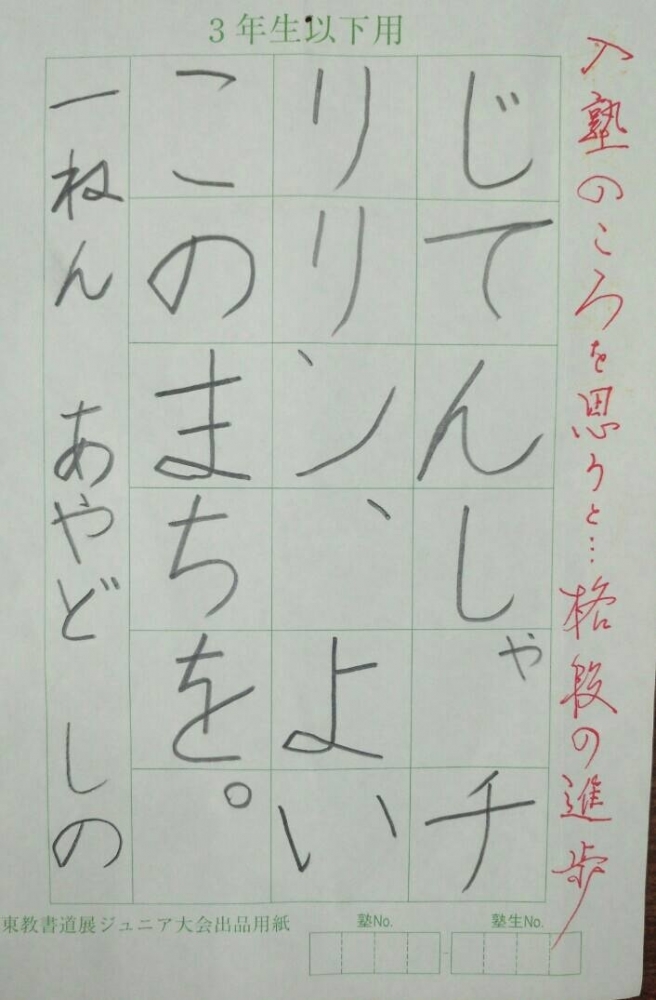 3年生以下用
入塾のころを思うと…格段の進歩
じてんしゃチ
リリン、よい
このまちを。
一ねん あやど しの
東教書道展ジュニア大会出品用紙
塾No.
塾生No.